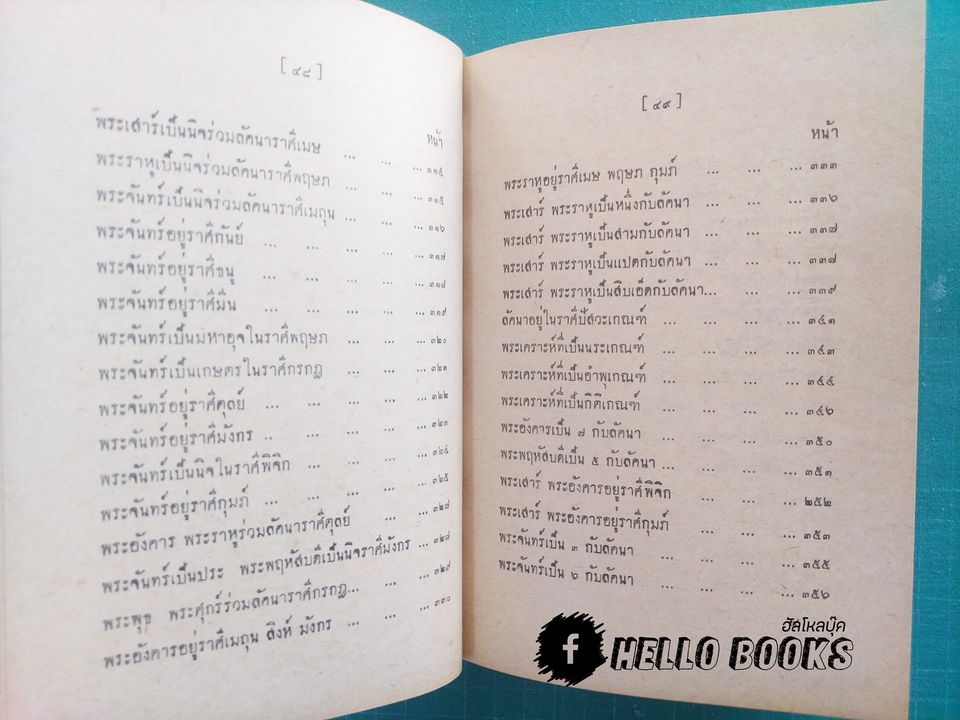 [ ๔๘ ]
หน้า
พระเสาร์เป็นนิจร่วมลัคนาราศีเมษ ... ... ... ๓๑๔
พระราหูเป็นนิจร่วมลัคนาราศีพฤษภ ... ... ... ๓๑๕
พระจันทร์เป็นนิจร่วมลัคนาราศีเมถุน ... ... ๓๑๖
พระจันทร์อยู่ราศีกันย์ ... ... ... ... ๓๑๗
พระจันทร์อยู่ราศีธนู ... ... ... ... ๓๑๘
พระจันทร์อยู่ราศีมีน ... ... ... ... ๓๑๙
พระจันทร์เป็นมหาอุจในราศีพฤษภ ... ... ... ๓๒๐
พระจันทร์เป็นเกษตรในราศีกรกฎ ... ... ... ๓๒๑
พระจันทร์อยู่ราศีตุลย์ ... ... ... ... ๓๒๒
พระจันทร์อยู่ราศีมังกร .. ... ... ... ๓๒๓
พระจันทร์เป็นนิจในราศีพิจิก ... ... ... ๓๒๔
พระจันทร์อยู่ราศีกุมภ์ ... ... ... ... ๓๒๕
พระอังคาร พระราหูร่วมลัคนาราศีตุลย์ ... ... ๓๒๗
พระจันทร์เป็นประ พระพฤหัสบดีเป็นนิจราศีมังกร ... ๓๒๘
พระพุธ พระศุกร์ร่วมลัคนาราศีกรกฎ... ... ... ๓๒๙
พระอังคารอยู่ราศีเมถุน สิงห์ มังกร ... ... ... ๓๓๐
[ ๔๙ ]
หน้า
พระราหูอยู่ราศีเมษ พฤษภ กุมภ์ ... ... ... ๓๓๓
พระเสาร์ พระราหูเป็นหนึ่งกับลัคนา ... ... ... ๓๓๖
พระเสาร์ พระราหูเป็นสามกับลัคนา ... ... ... ๓๓๗
พระเสาร์ พระราหูเป็นแปดกับลัคนา ... ... ... ๓๓๘
พระเสาร์ พระราหูเป็นสิบเอ็ดกับลัคนา... ... ... ๓๓๙
ลัคนาอยู่ในราศีปัสวะเกณฑ์ ... ... ... ... ๓๔๑
พระเคราะห์ที่เป็นนระเกณฑ์ ... ... ... ... ๓๔๓
พระเคราะห์ที่เป็นอำพุเกณฑ์ ... ... ... ... ๓๔๔
พระเคราะห์ที่เป็นกิติเกณฑ์ ... ... ... ... ๓๔๖
พระอังคารเป็น ๗ กับลัคนา ... ... ... ... ๓๕๐
พระพฤหัสบดีเป็น ๕ กับลัคนา ... ... ... ... ๓๕๑
พระเสาร์ พระอังคารอยู่ราศีพิจิก ... ... ... ๒๕๒
พระเสาร์ พระอังคารอยู่ราศีกุมภ์ ... ... ... ๓๕๓
พระจันทร์เป็น ๓ กับลัคนา ... ... ... ... ๓๕๕
พระจันทร์เป็น ๖ กับลัคนา ... ... ... ... ๓๕๖
ฮัลโหลบุ๊ค
f HELLO BOOKS